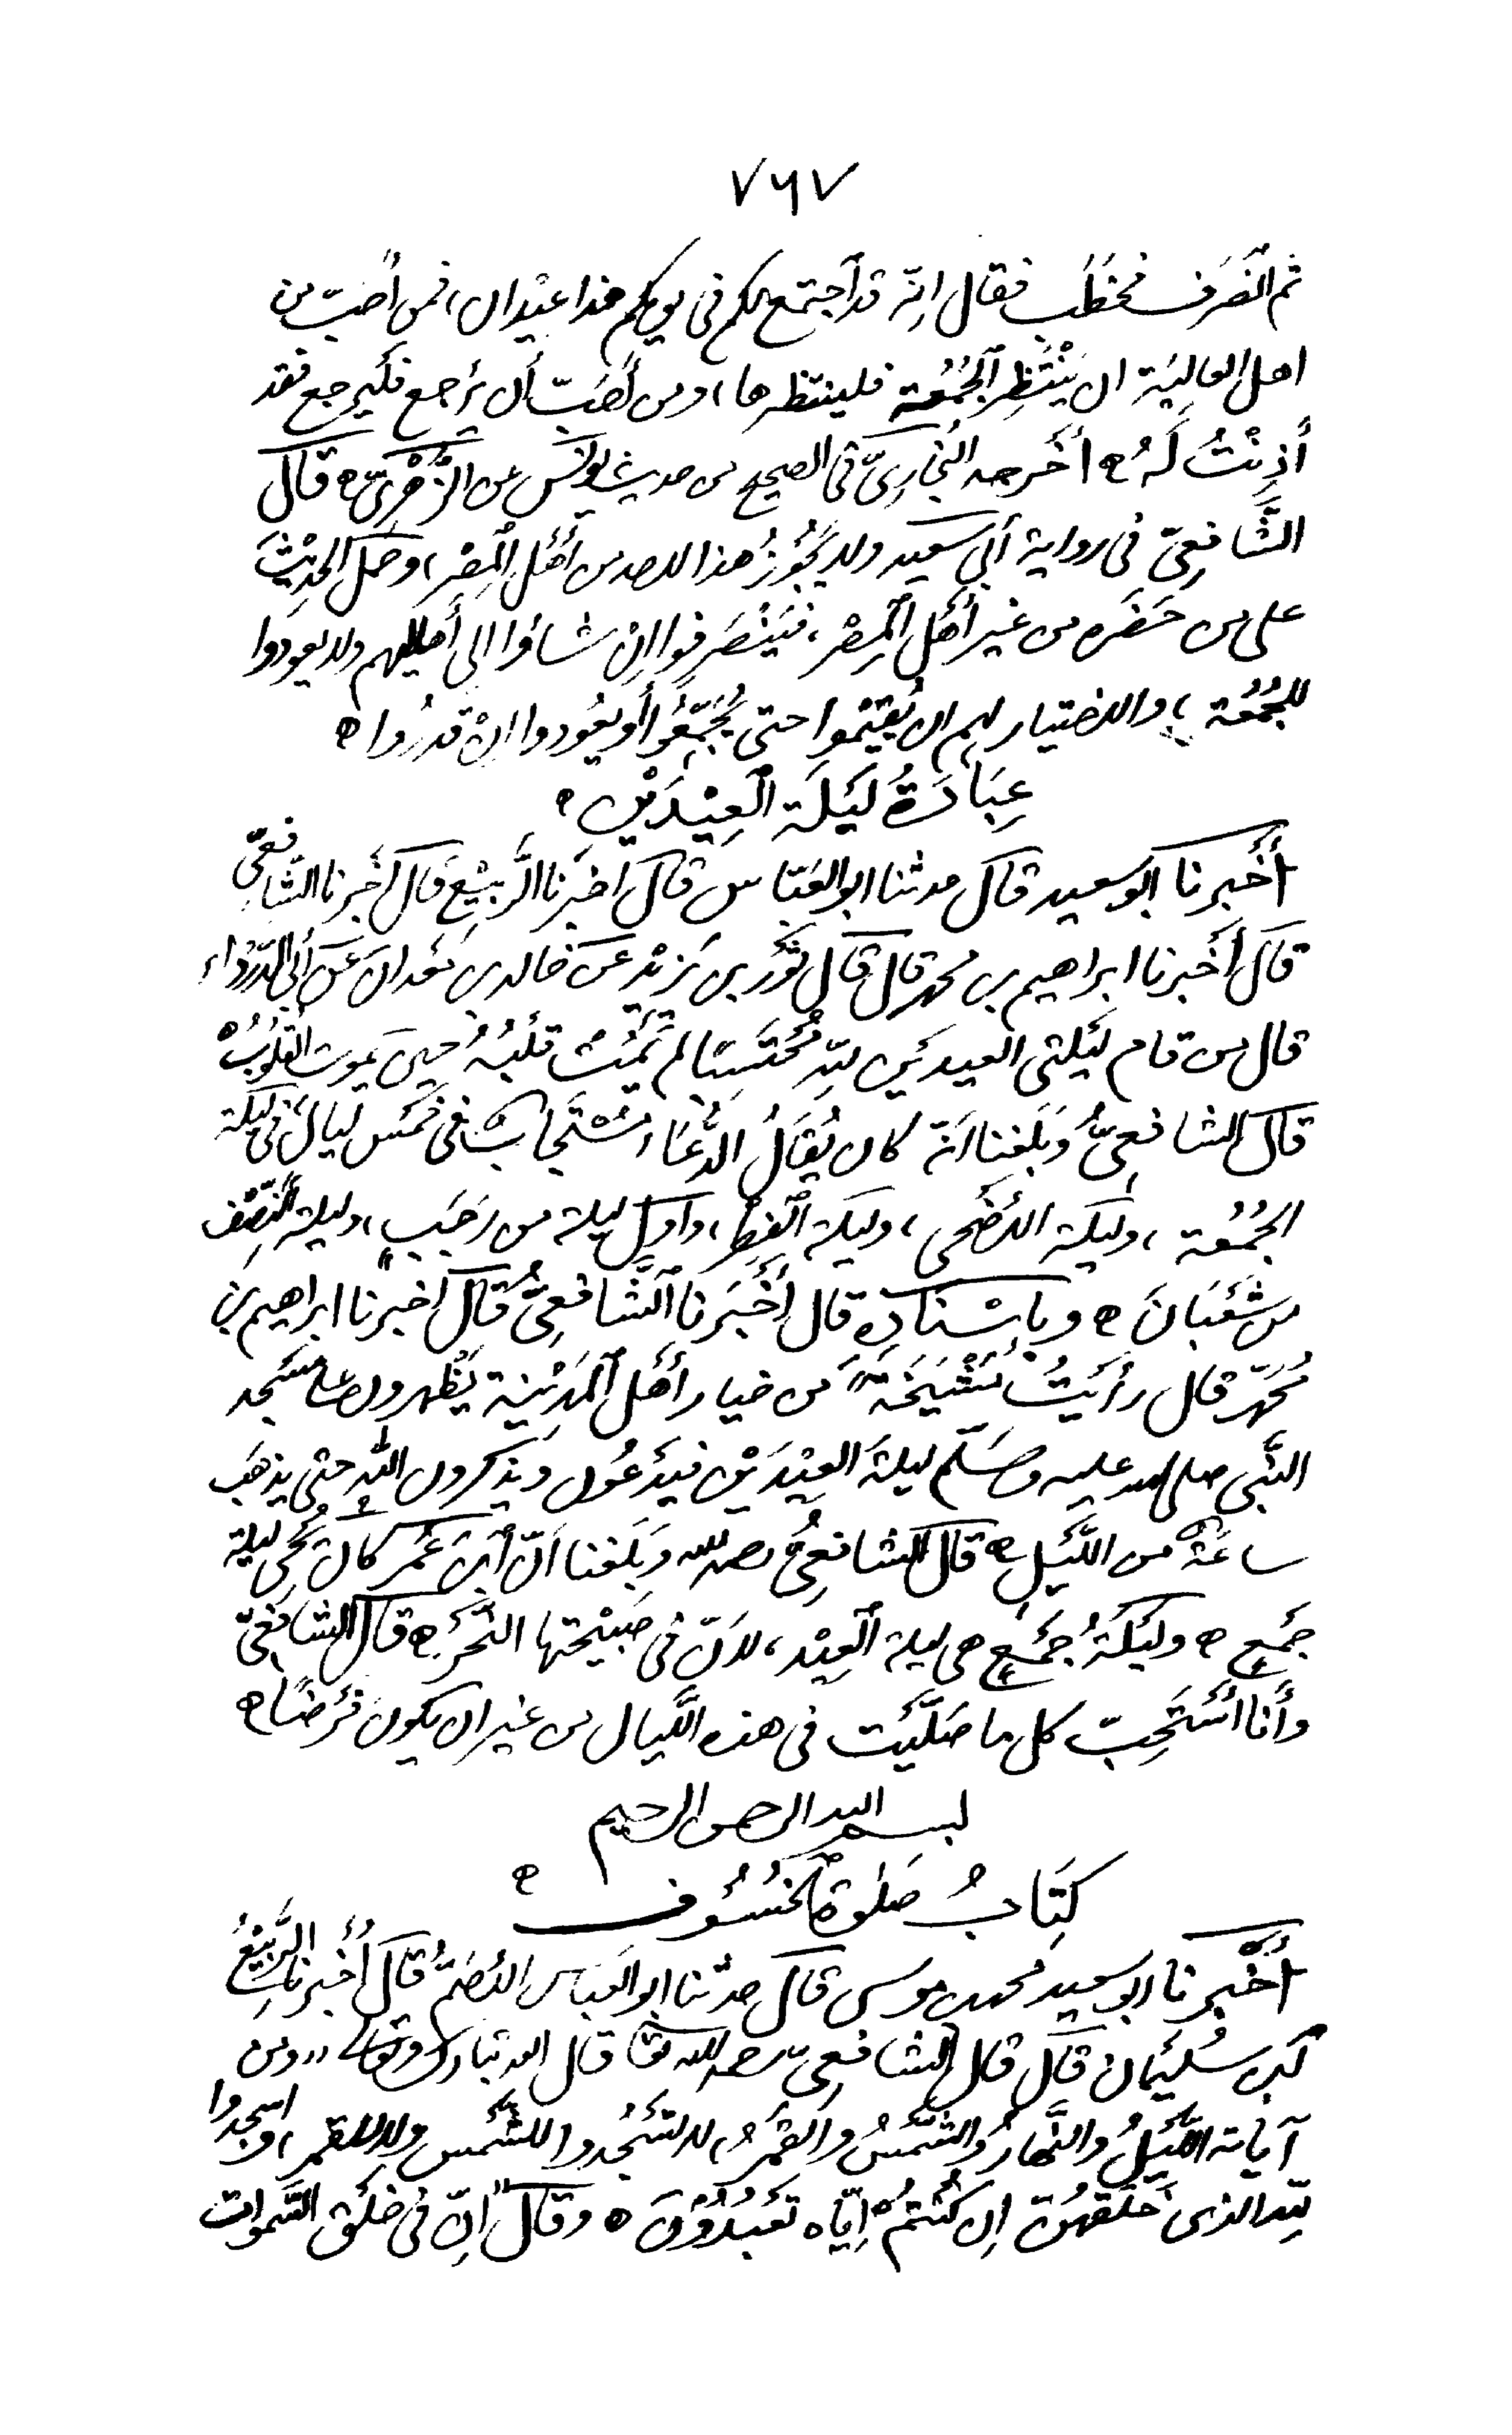 ٧٦٧
ثم انصَرَف فخطَبَ فقال اِنّه قد اجتمع لكم فى يومكم هذا عيْدان، فمن اَحَبّ من
اهل العالِيَةِ ان يَنْتَظِر الجُمُعَة فلينتظرها، ومن أَحَبّ أن يَرْجع فَلْيرجع فقد
أَذِنْتُ لَهُ ه أخْرجه البُخارِىّ فى الصحيح من حديث يونس عن الزُّهْرِىّ ه قال
الشَّافِعىّ فى رواية أبى سعيد ولا يَجُوْزُ هذا لاحد من اَهْل المِصْر، وحمل الحدِيْثَ
على من حَضَره من غير أَهْل المِصْر، فيَنْصَرِفوا اِنْ شاؤا الى أهليهم ولا يعودوا
للجُمُعَة، والاختيار لهم ان يُقيْمُوا حتى يُجَمِّعُوا أو يعُودوا اِنْ قدرُوا ه
عِبَادَةُ لَيْلَةِ العِيْدَيْنِ ه
أَخْبرنا ابو سعيد قال حدثنا ابو العَبّاس قال اخبرَنا الرَّبِيْع قال أَخْبرنا الشّافعىّ
قال أَخْبرنا ابراهيم بن محمد قال قال ثَوْر بن يَزِيْد عن خالد بن مَعْدان عَن أبى الدَّرْدَاء
قال من قام لَيْلَتى العيدَيْن للهِ مُحْتَسِبًا لم يَمُتْ قلْبُهُ حِيْنَ يموت القلُوبُ ه
قال الشافعىُّ وَبَلَغنا اَنّه كان يُقَالُ الدُّعَاء مُسْتَجَاب فى خَمْس ليالٍ، فى ليلة
الجُمُعَة، وليلة الاَضْحى، وليلة الفِطْر، واوّل ليلة من رَجَبٍ، وليلة النِّصْف
من شَعْبَانَ ه وبِاِسْنادِهِ قال أَخْبَرنا الشَّافعِىُّ قال اخبرنا ابراهيم بن
مُحَمّد قال رأَيْتُ مَشْيَخَةً من خيار أَهْل المَدِيْنة يَظْهرون على مَسْجد
النَّبى صلى الله عليه وسَلّم ليلةَ العِيْدَيْن فيَدْعُوْن ويَذكرون الله حتى يذهَب
ساعَةٌ من اللَّيْلِ ه قال الشافِعِىُّ رحمه الله وَبَلَغنا اَنّ ابْن عُمَر كان يُحْيى ليلة
جَمْعٍ ه ولَيْلَةُ جَمْعٍ هى ليلة العِيْد، لاَنّ فى صَبِيْحَتها النَّحْرَ ه قال الشافِعىّ
وأَنا أسْتَحِبّ كل ما حَكَيْت فى هذه اللَّيال من غير ان يكون فَرْضًا ه
بسم الله الرحمن الرحيم
كِتَابُ صَلوةِ الخُسُوْف ه
أَخْبرنا ابو سعيد محمد بن موسى قال حدثنا ابو العَبّاس الاَصَمُّ قال أَخْبرنا الرَّبِيْعُ
بن سُلَيْمان قال قال الشافعىّ رحمه الله تعا قال الله تبارك وتعالى "ومن
آياته اللَّيْلُ والنَّهارُ والشَّمْسُ والقَمَرُ، لا تَسْجُدوا للشَّمْس ولا للقمر، واسجدوا
للّه الذى خلَقَهُنّ اِن كُنْتُمْ اِيّاه تَعْبُدُوْنَ ه وقال "اِنّ فى خلْق السَّموات